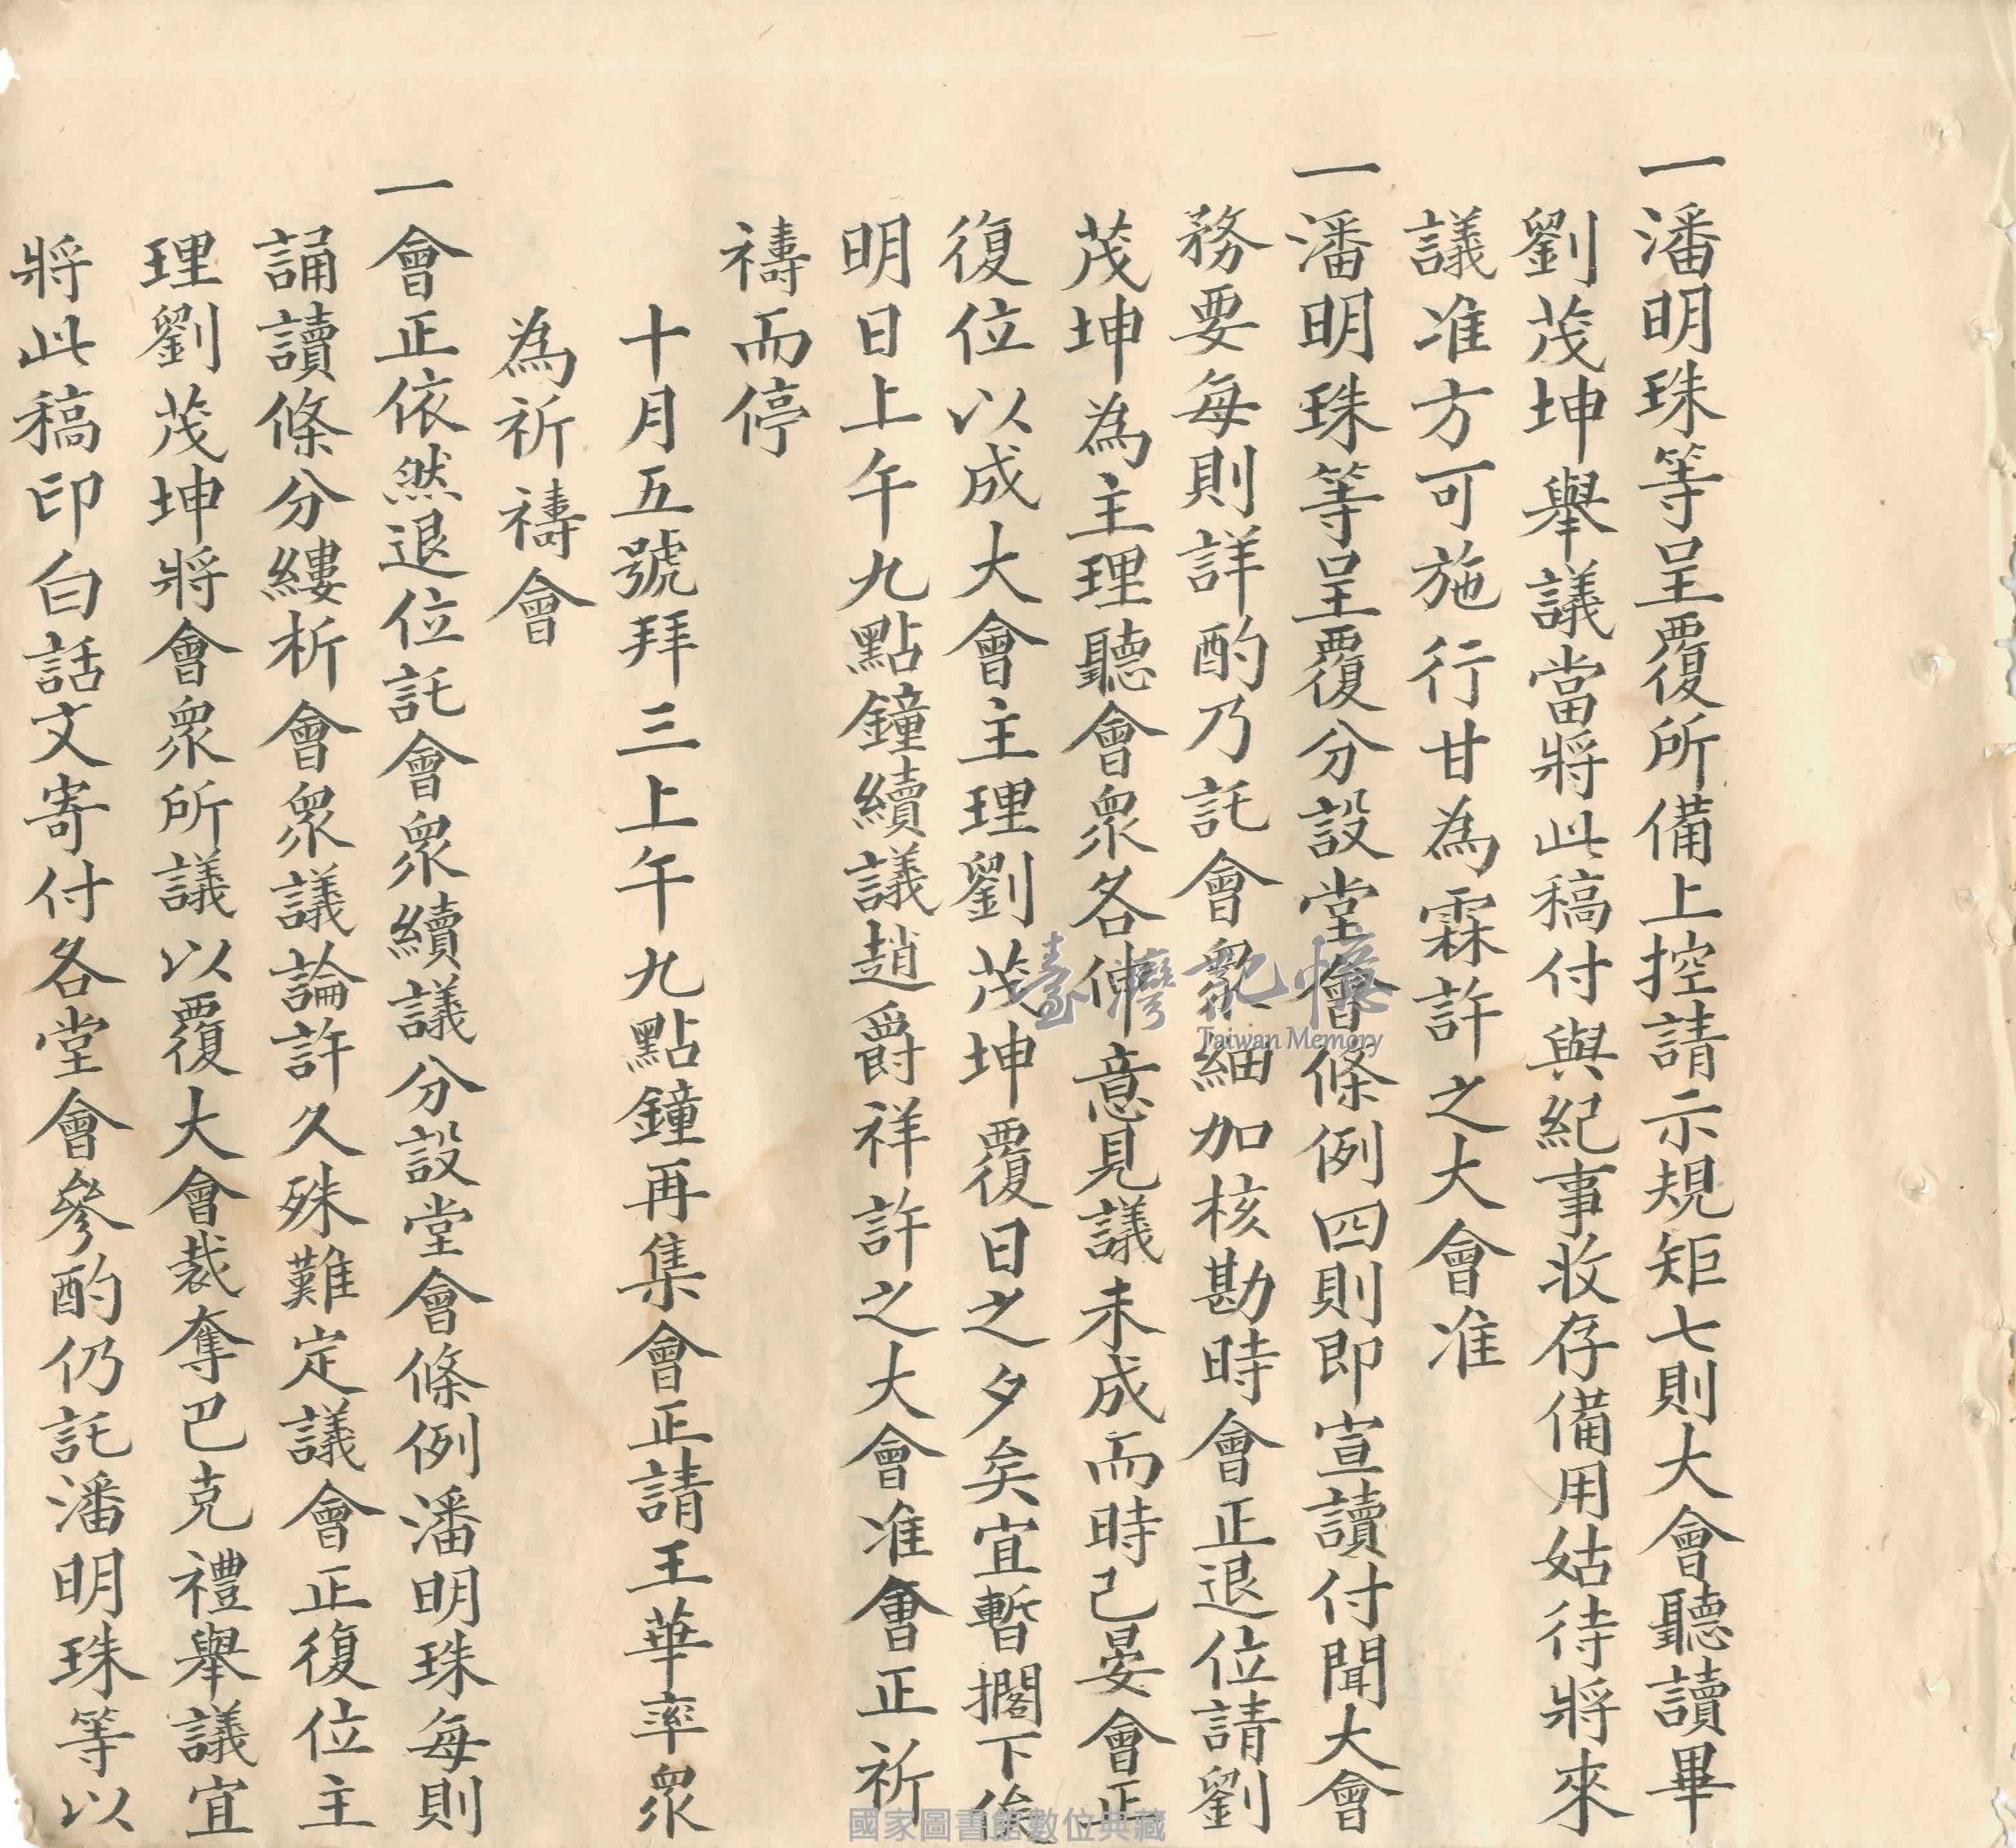 一潘明珠等呈覆所備上控請示規矩七則大會聽讀畢
劉茂坤舉議當將此稿付與紀事收存備用姑待將來
議准方可施行甘為霖許之大會准
一潘明珠等呈覆分設堂會條例四則即宣讀付聞大會
務要每則詳酌乃託會眾細加核勘時會正退位請劉
茂坤為主理聽會眾各伸意見議未成而時已晏會正
復位以成大會主理劉茂坤覆日之夕矣宜暫擱下俟
明日上午九點鐘續議趙爵祥許之大會准會正祈
禱而停
十月五號拜三上午九點鐘再集會正請王華率眾
為祈禱會
一會正依然退位託會眾續議分設堂會條例潘明珠每則
誦讀條分縷析會眾議論許久殊難定議會正復位主
理劉茂坤將會眾所議以覆大會裁奪巴克禮舉議宜
將此稿印白話文寄付各堂會參酌仍託潘明珠等以
臺灣記憶
Taiwan Memory
國家圖書館數位典藏